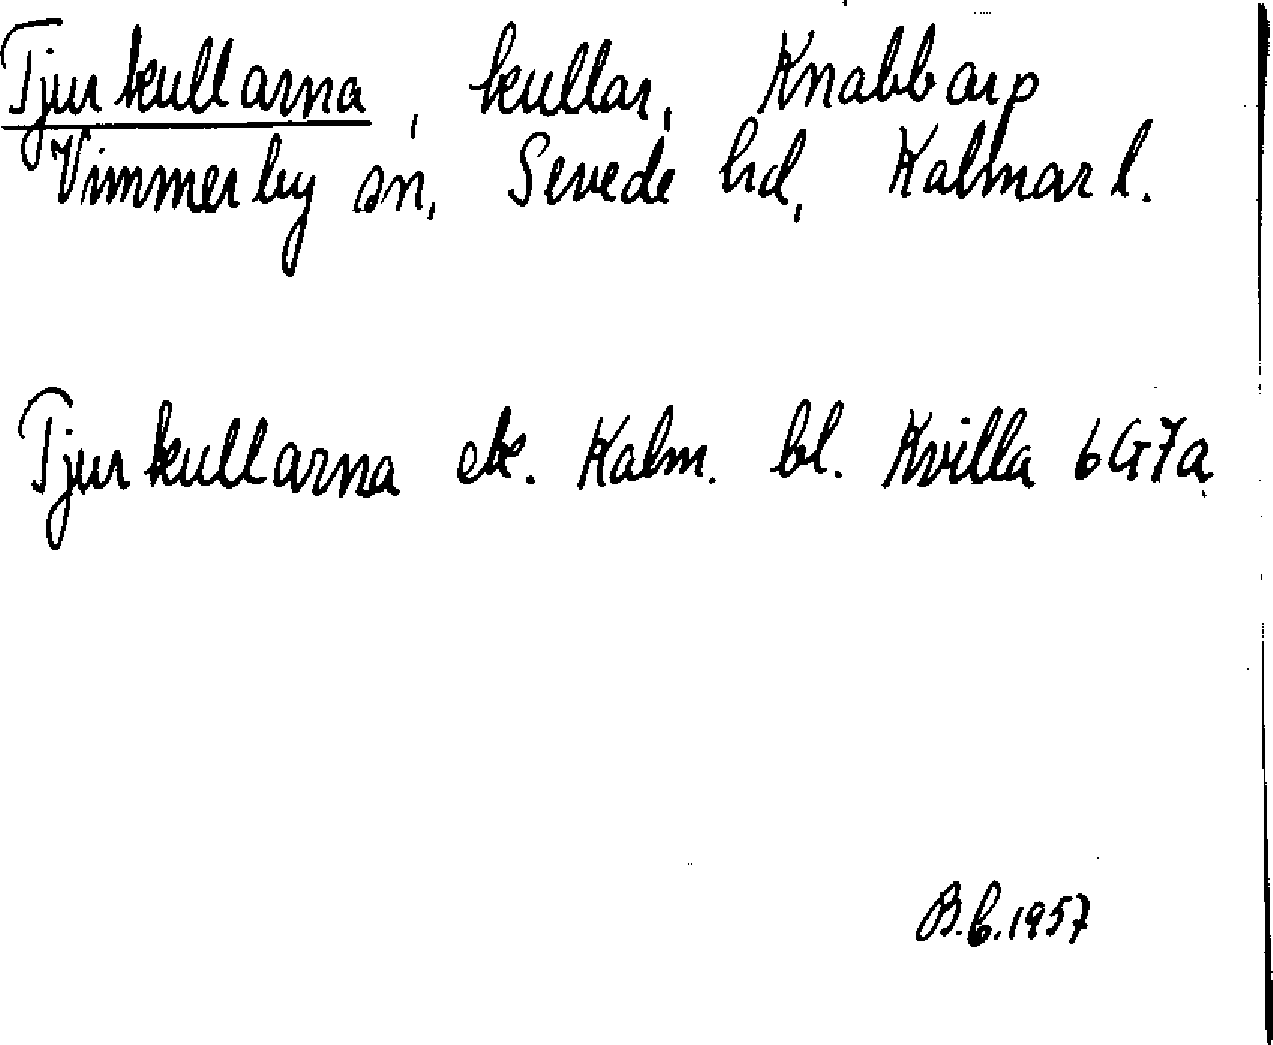 Tjurkullarna, kullar, Knabbarp
Vimmerby sn, Sevede hd, Kalmar l.
Tjurkullarna ek. Kalm. bl. Kvilla 6G7a
B.b.1957